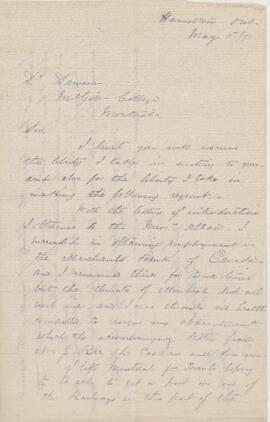 Hamilton Ont.
May 5/7
Dr Dawson
McGill College
Montreal
Sir,
I trust you will excuse
the liberty I take in writing to you
and also for the liberty I take in
making the following request.
With the letters of introduction
I obtained to the Messrs Allan I
succeeded in obtaining employment in
the Merchants Bank of Canada
and I remained there for some time
but the climate of Montreal did not
suit me and I was through ill health
compelled to resign my appointment
which the accompanying letter from
Mr J. Rae the Cashier will show
I left Montreal for Toronto hoping
to be able to get a post on one of
the Railways in this part of the